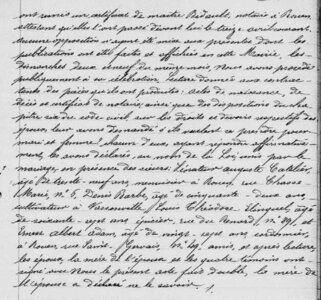 ont remis un certificat de maître Bidault, notaire à Rouen
attestant qu'elles ont passé devant lui le treize avril courant.
Aucune opposition n'ayant été mise aux présentes dont les
publications ont été faites et affichées en cette Mairie les
Dimanches deux et neuf du même mois. Nous avons procédé
publiquement à sa célébration, lecture donnée aux contrac-
tants des pièces qu'ils ont produites, actes de naissance, de
décès et certificat de notaire, ainsi que des dispositions du cha-
pitre six du code civil sur les droits et devoirs respectifs des
époux, leur avons demandé s'ils veulent se prendre pour
mari et femme. Chacun d'eux ayant répondu affirmative-
ment, les avons déclarés, au nom de la Loi, unis par le
mariage, en présence des sieurs Auguste
âgé de trente-neuf ans, menuisier à Rouen, rue
N° 5, Denis âgé de cinquante-deux ans
cultivateur à Louis Théodore âgé
de soixante-sept ans, épicier, rue du Renard, N° et
Ernest Albert Adam, âgé de vingt-sept ans, cordonnier,
à Rouen, rue Saint-Gervais, N° amis, et après lecture,
les époux, la mère de l'épouse et les quatre témoins ont
signé avec Nous le présent acte fait double, la mère de
l'épouse a déclaré ne le savoir.